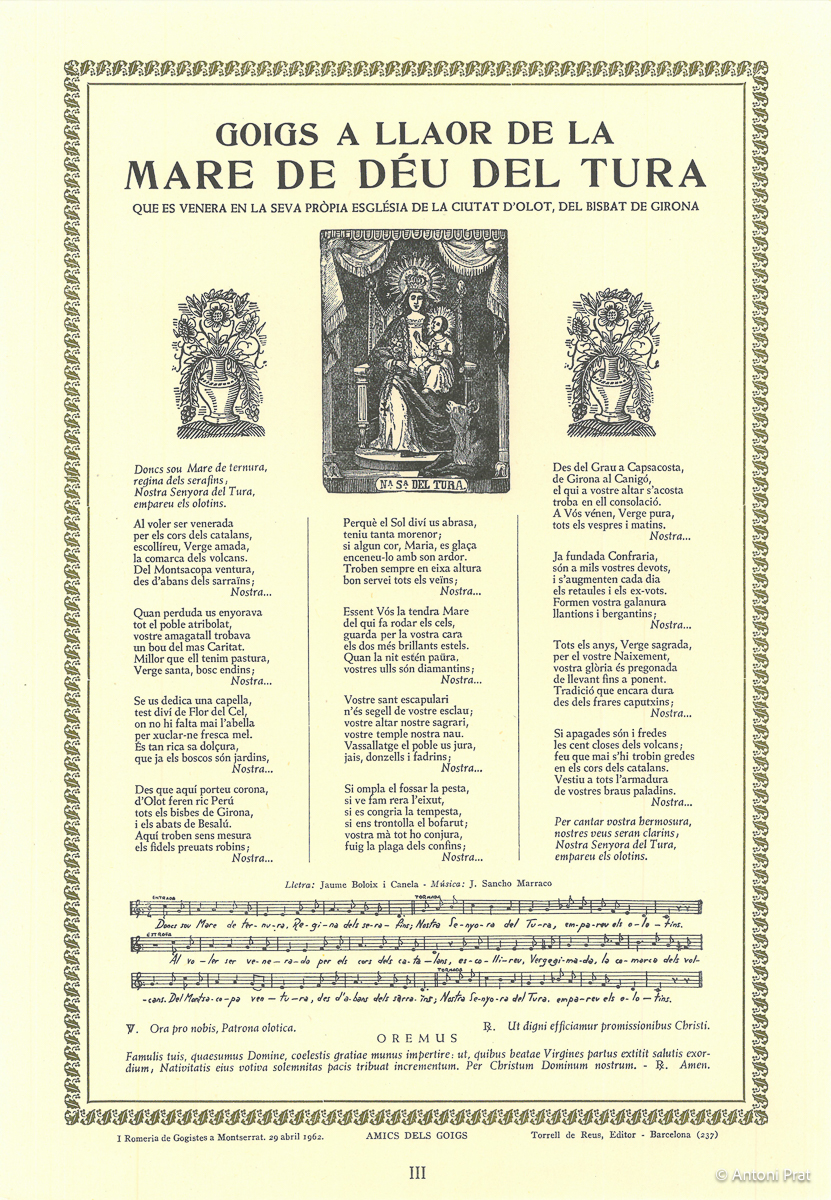 GOIGS A LLAOR DE LA
MARE DE DÉU DEL TURA
QUE ES VENERA EN LA SEVA PRÒPIA ESGLÉSIA DE LA CIUTAT D'OLOT, DEL BISBAT DE GIRONA
Nª. Sª. DEL TURA.
Doncs sou Mare de ternura,
regina dels serafins;
Nostra Senyora del Tura,
empareu els olotins.
Al voler ser venerada
per els cors dels catalans,
escollíreu, Verge amada,
la comarca dels volcans.
Del Montsacopa ventura,
des d'abans dels sarraïns;
Nostra...
Quan perduda us enyorava
tot el poble atribolat,
vostre amagatall trobava
un bou del mas Caritat.
Millor que ell tenim pastura,
Verge santa, bosc endins;
Nostra...
Se us dedica una capella,
test diví de Flor del Cel,
on no hi falta mai l'abella
per xuclar-ne fresca mel.
És tan rica sa dolçura,
que ja els boscos són jardins,
Nostra...
Des que aquí porteu corona,
d'Olot feren ric Perú
tots els bisbes de Girona,
i els abats de Besalú.
Aquí troben sens mesura
els fidels preuats robins;
Nostra...
Perquè el Sol diví us abrasa,
teniu tanta morenor;
si algun cor, Maria, es glaça
enceneu-lo amb son ardor.
Troben sempre en eixa altura
bon servei tots els veïns;
Nostra...
Essent Vós la tendra Mare
del qui fa rodar els cels,
guarda per la vostra cara
els dos més brillants estels.
Quan la nit estén paüra,
vostres ulls són diamantins;
Nostra...
Vostre sant escapulari
n'és segell de vostre esclau;
vostre altar nostre sagrari,
vostre temple nostra nau.
Vassallatge el poble us jura,
jais, donzells i fadrins;
Nostra...
Si ompla el fossar la pesta,
si ve fam rera l'eixut,
si es congria la tempesta,
si ens trontolla el bofarut;
vostra mà tot ho conjura,
fuig la plaga dels confins;
Nostra...
Des del Grau a Capsacosta,
de Girona al Canigó,
el qui a vostre altar s'acosta
troba en ell consolació.
A Vós vénen, Verge pura,
tots els vespres i matins.
Nostra...
Ja fundada Confraria,
són a mils vostres devots,
i s'augmenten cada dia
els retaules i els ex-vots.
Formen vostra galanura
llantions i bergantins;
Nostra...
Tots els anys, Verge sagrada,
per el vostre Naixement,
vostra glòria és pregonada
de llevant fins a ponent.
Tradició que encara dura
des dels frares caputxins;
Nostra...
Si apagades són i fredes
les cent closes dels volcans;
feu que mai s'hi trobin gredes
en els cors dels catalans.
Vestiu a tots l'armadura
de vostres braus paladins.
Nostra...
Per cantar vostra hermosura,
nostres veus seran clarins;
Nostra Senyora del Tura,
empareu els olotins.
Lletra: Jaume Boloix i Canela - Música: J. Sancho Marraco
ENTRADA TORNADA
Doncs sou Mare de ter-nu-ra, Re-gi-na dels se-ra-fins; Nostra Se-nyo-ra del Tu-ra, em-pa-reu els o-lo-tins.
ESTROFA
Al vo-ler ser ve-ne-ra-da per els cors dels ca-ta-lans, es-co-lli-reu, Vergegi-ma-da, la co-marca dels vol-
TORNADA
-cans. Del Montsa-co-pa ven-tu-ra, des d'a-bans dels sarra-ïns; Nostra Se-nyo-ra del Tura. empa-reu els o-lo-tins.
℣. Ora pro nobis, Patrona olotica. ℟. Ut digni efficiamur promissionibus Christi.
OREMUS
Famulis tuis, quaesumus Domine, coelestis gratiae munus impertire: ut, quibus beatae Virgines partus extitit salutis exor-
dium, Nativitatis eius votiva solemnitas pacis tribuat incrementum. Per Christum Dominum nostrum. - ℟. Amen.
I Romeria de Gogistes a Montserrat. 29 abril 1962. AMICS DELS GOIGS Torrell de Reus, Editor - Barcelona (237)
III
© Antoni Prat